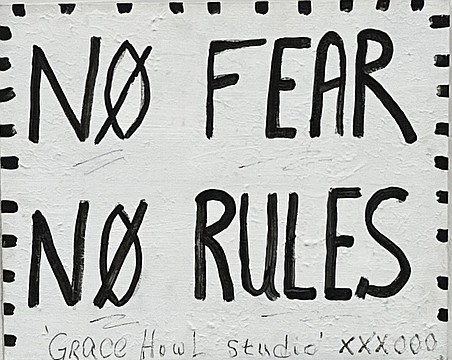 NØ FEAR
NØ RULES
'GRACE HowL studio' xxx000